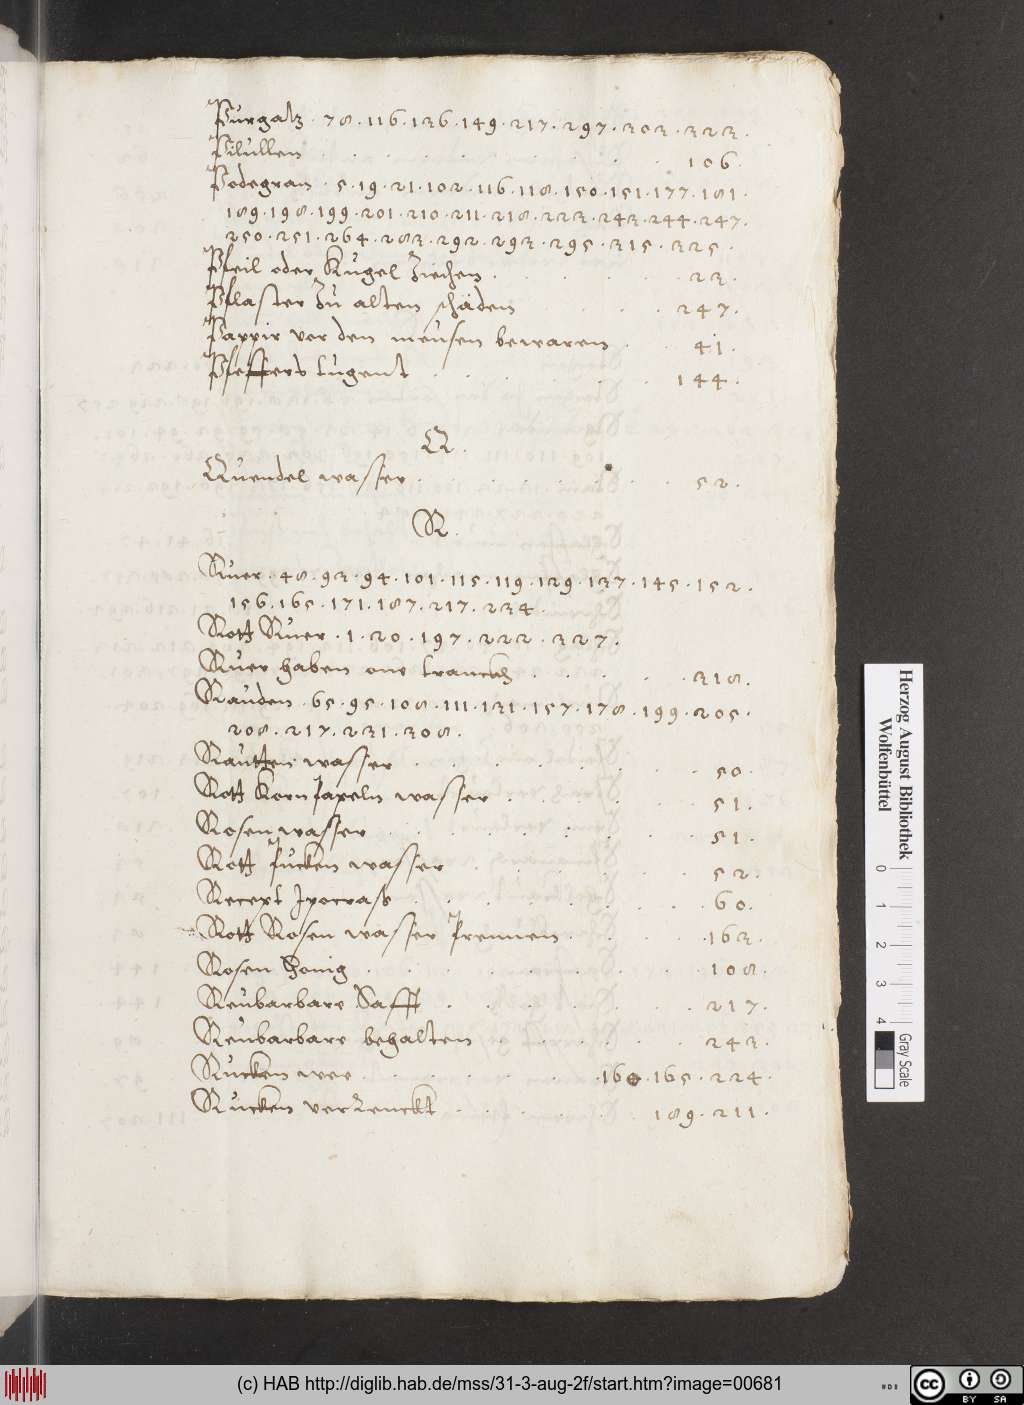 Purgatz · 78 · 116 · 136 · 149 · 217 · 297 · 303 · 323 ·
Pilullen . . . . 106 ·
Podegram · 5 · 19 · 21 · 102 · 116 · 118 · 150 · 151 · 177 · 181 ·
189 · 198 · 199 · 201 · 210 · 211 · 218 · 223 · 243 · 244 · 247 ·
250 · 251 · 264 · 283 · 292 · 293 · 295 · 315 · 325 ·
Pfeil oder Kugel Ziechen . . . . 23 ·
Pflaster Zu alten schäden . . . . 247 ·
Pappir vor den meusen bewaren . . 41 ·
Pfeffers tugent . . . . 144 ·
Q.
Quendel wasser . . . . 52 ·
R.
Ruer · 48 · 93 · 94 · 101 · 115 · 119 · 129 · 137 · 145 · 152 ·
156 · 165 · 171 · 187 · 217 · 234 ·
Rott Ruer · 1 · 20 · 197 · 222 · 327 ·
Ruer haben one tranckh . . . . 318 ·
Rauden · 65 · 95 · 108 · 111 · 131 · 157 · 178 · 199 · 205 ·
208 · 217 · 231 · 308 ·
Rautten wasser . . . . 50 ·
Rott Korn wasser . . . . 51 ·
Rosen wasser . . . . 51 ·
Rott wasser . . . . 52 ·
Recept Jpocrass . . . . 60 ·
Rott Rosen wasser Prennen . . . . 163 ·
Rosen Honig . . . . 108 ·
Reubarbare Safft . . . . 217 ·
Reubarbare behalten . . . . 243 ·
Rucken wee . . . . 160 · 165 · 224 ·
Rucken verrenckt . . . . 189 · 211 ·
Herzog August Bibliothek
Wolfenbüttel
0 1 2 3 4
Gray Scale
(c) HAB http://diglib.hab.de/mss/31-3-aug-2f/start.htm?image=00681
cc BY SA